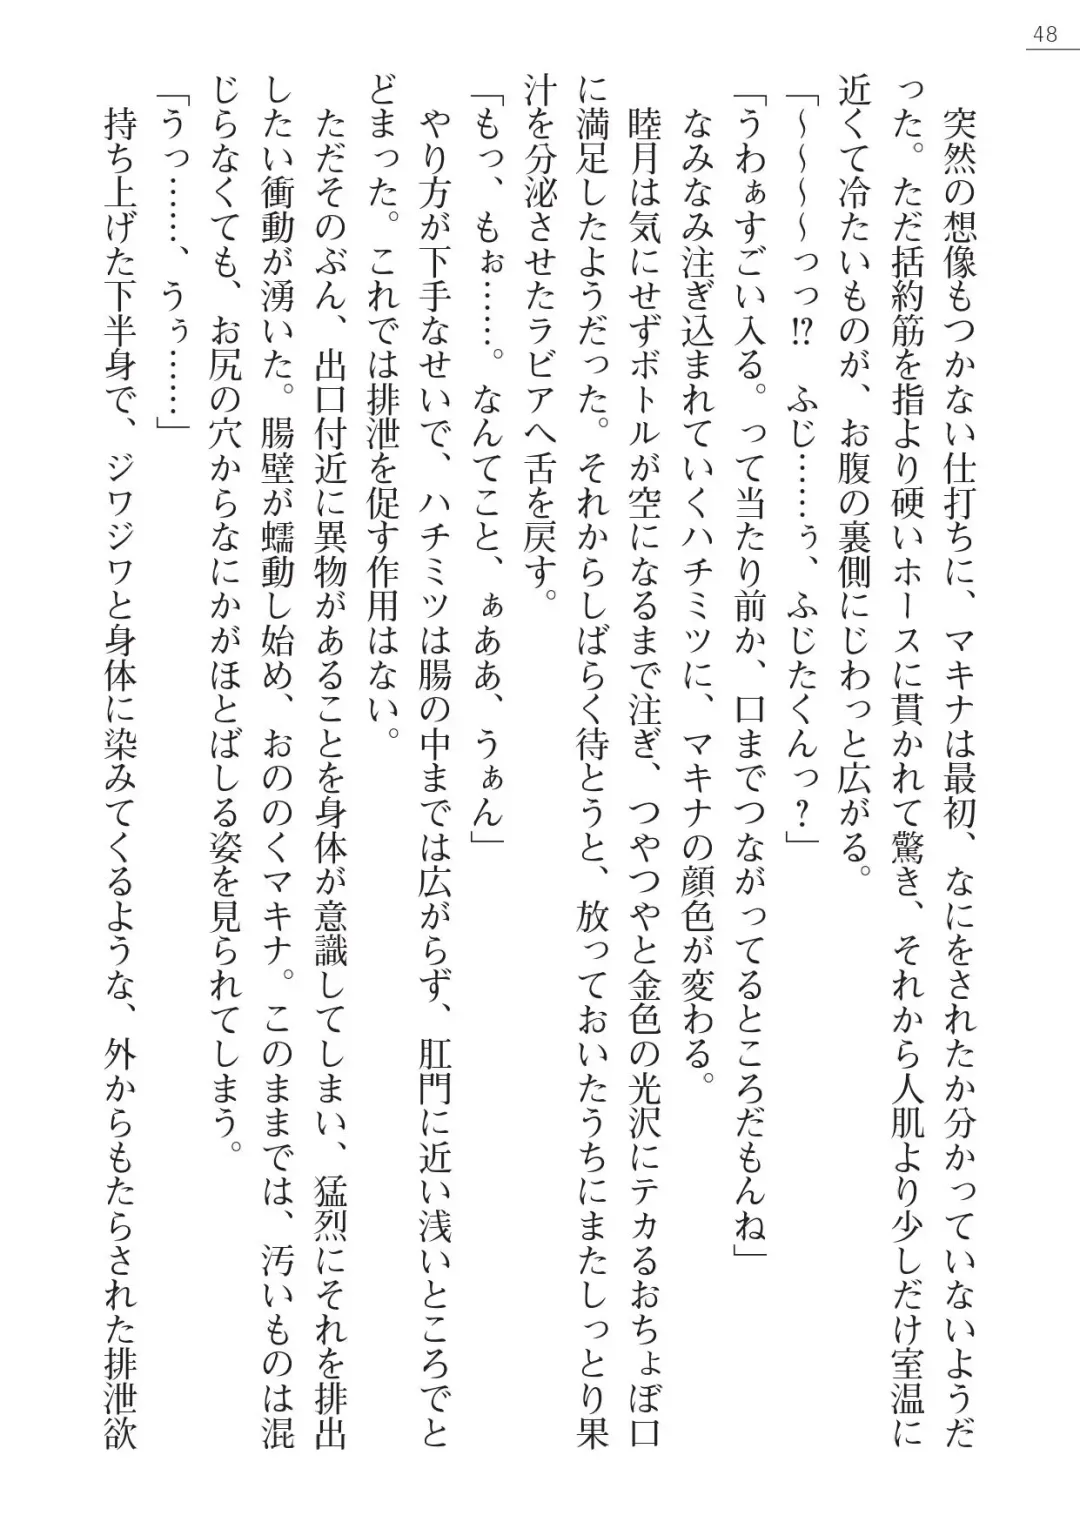 48
突然の想像もつかない仕打ちに、マキナは最初、なにをされたか分かっていないようだ
った。ただ括約筋を指より硬いホースに貫かれて驚き、それから人肌より少しだけ室温に
近くて冷たいものが、お腹の裏側にじわっと広がる。
「～～～～っっ!?　ふじ……ぅ、ふじたくんっ？」
「うわぁすごい入る。って当たり前か、口までつながってるところだもんね」
なみなみ注ぎ込まれていくハチミツに、マキナの顔色が変わる。
睦月は気にせずボトルが空になるまで注ぎ、つやつやと金色の光沢にテカるおちょぼ口
に満足したようだった。それからしばらく待とうと、放っておいたうちにまたしっとり果
汁を分泌させたラビアへ舌を戻す。
「もっ、もぉ……。なんてこと、ぁああ、うぁん」
やり方が下手なせいで、ハチミツは腸の中までは広がらず、肛門に近い浅いところでと
どまった。これでは排泄を促す作用はない。
ただそのぶん、出口付近に異物があることを身体が意識してしまい、猛烈にそれを排出
したい衝動が湧いた。腸壁が蠕動し始め、おののくマキナ。このままでは、汚いものは混
じらなくても、お尻の穴からなにかがほとばしる姿を見られてしまう。
「うっ……、うぅ……」
持ち上げた下半身で、ジワジワと身体に染みてくるような、外からもたらされた排泄欲